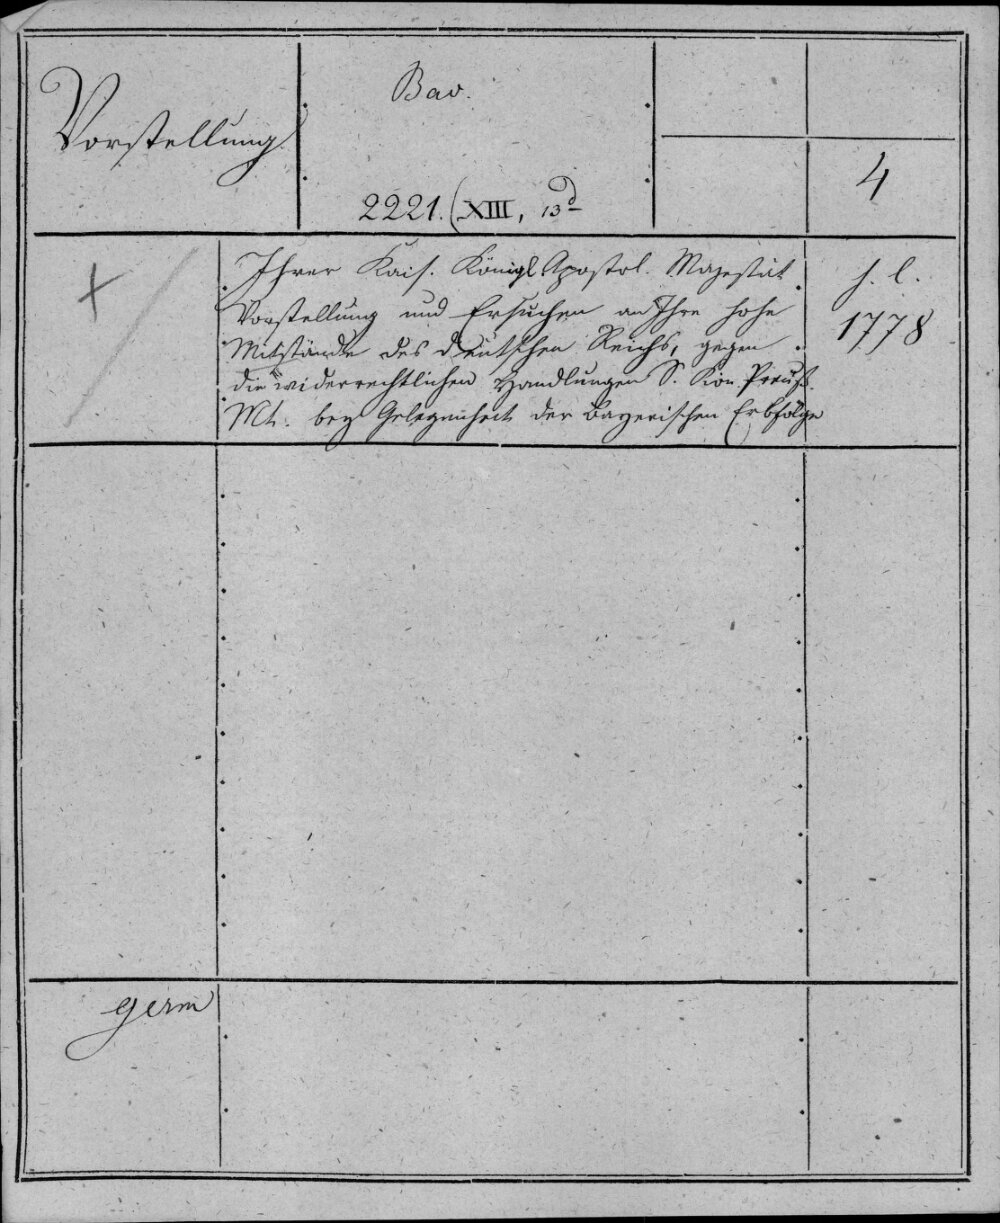 Vorstellung
Bav.
2221. (XIII, 13d
4
+
Ihrer Kais. Königl Apostol. Majestät
Vorstellung und Ersuchen an Ihre hohe
Mitstände des deutschen Reichs, gegen
die widerrechtlichen Handlungen S. Kön. Preuß.
Mt. bey Gelegenheit der Bayerischen Erbfolge
s. l.
1778
germ